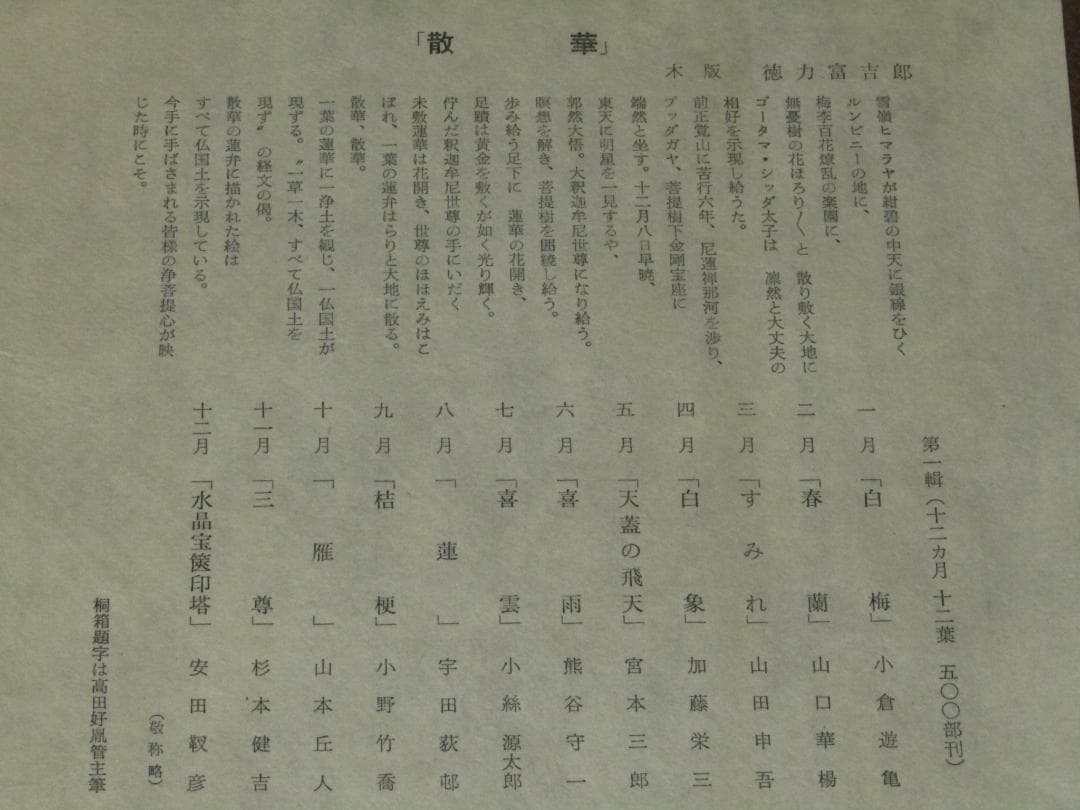 「散華」
木版　徳力富吉郎
雪嶺ヒマラヤが紺碧の中天に銀線をひく
ルンビニーの地に、
梅李百花燎乱の楽園に、
無憂樹の花ほろり〳〵と　散り敷く大地に
ゴータマ・シッダ太子は　凛然と大丈夫の
相好を示現し給うた。
前正覚山に苦行六年、尼蓮禅那河を渉り、
ブッダガヤ、菩提樹下金剛宝座に
端然と坐す。十二月八日早暁、
東天に明星を一見するや、
郭然大悟。大釈迦牟尼世尊になり給う。
瞑想を解き、菩提樹を囲繞し給う。
歩み給う足下に　蓮華の花開き、
足蹟は黄金を敷くが如く光り輝く。
佇んだ釈迦牟尼世尊の手にいだく
未敷蓮華は花開き、世尊のほほえみはこ
ぼれ、一葉の蓮弁はらりと大地に散る。
散華、散華。
一葉の蓮華に一浄土を観じ、一仏国土が
現ずる。〝一草一木、すべて仏国土を
現ず〟の経文の偈。
散華の蓮弁に描かれた絵は
すべて仏国土を示現している。
今手に手ばさまれる皆様の浄菩提心が映
じた時にこそ。
第一輯（十二カ月 十二葉　五〇〇部刊）
一月「白梅」小倉遊亀
二月「春蘭」山口華楊
三月「すみれ」山田申吾
四月「白象」加藤栄三
五月「天蓋の飛天」宮本三郎
六月「喜雨」熊谷守一
七月「喜雲」小絲源太郎
八月「蓮」宇田荻邨
九月「桔梗」小野竹喬
十月「雁」山本丘人
十一月「三尊」杉本健吉
十二月「水晶宝篋印塔」安田靫彦
（敬称略）
桐箱題字は高田好胤管主筆